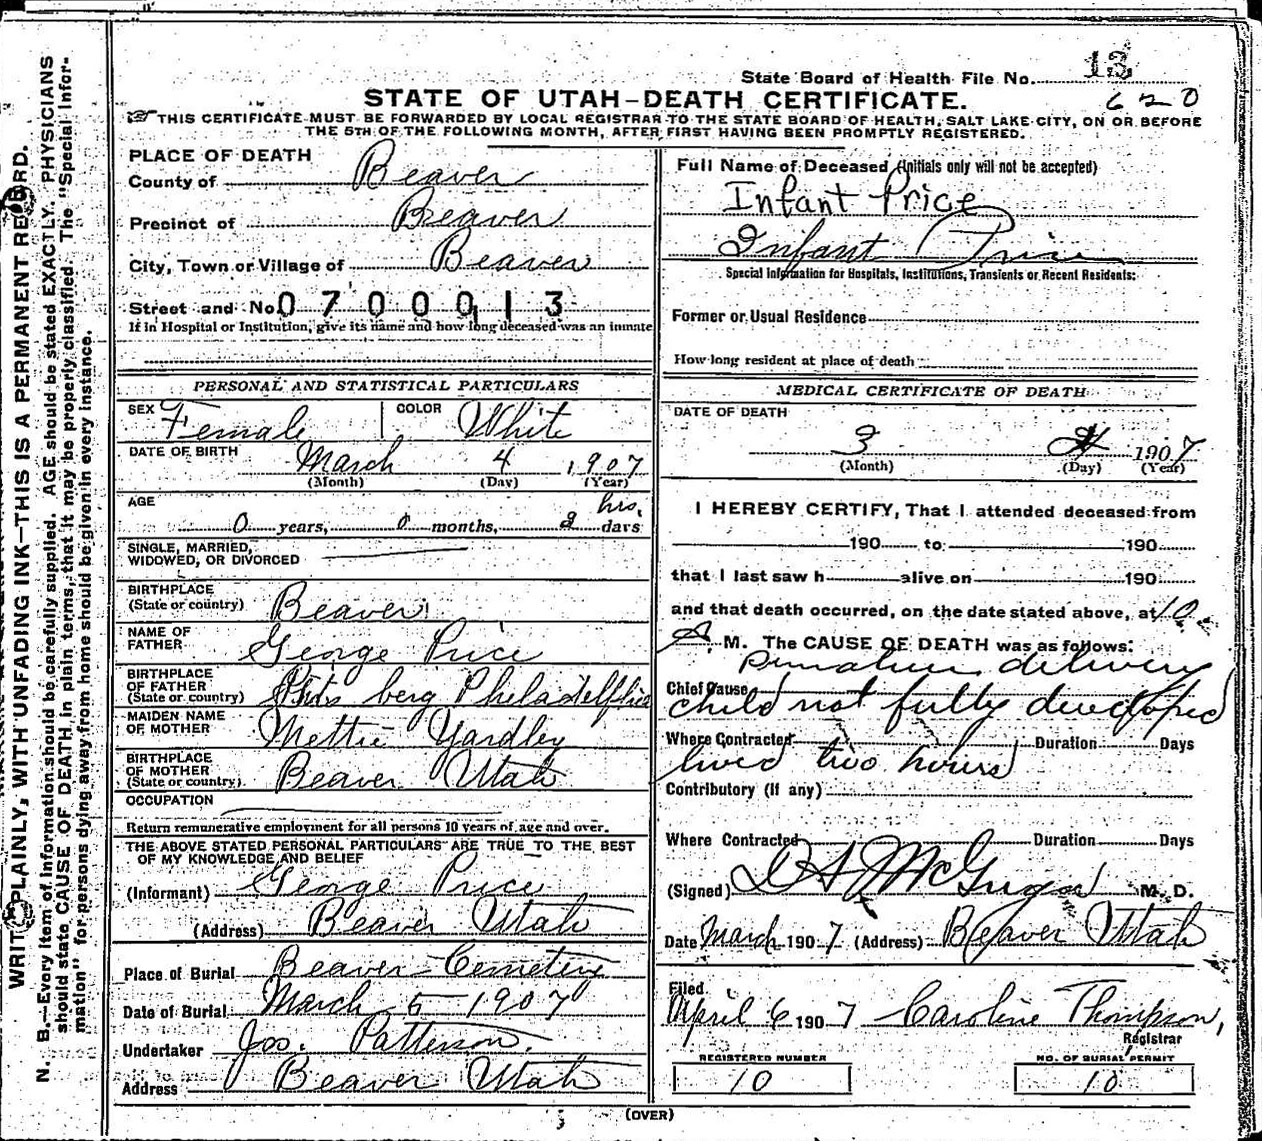 State Board of Health File No. 13
620
STATE OF UTAH—DEATH CERTIFICATE.
THIS CERTIFICATE MUST BE FORWARDED BY LOCAL REGISTRAR TO THE STATE BOARD OF HEALTH, SALT LAKE CITY, ON OR BEFORE
THE 5TH OF THE FOLLOWING MONTH, AFTER FIRST HAVING BEEN PROMPTLY REGISTERED.
WRITE PLAINLY, WITH UNFADING INK—THIS IS A PERMANENT RECORD.
N. B.—Every item of information should be carefully supplied. AGE should be stated EXACTLY. PHYSICIANS
should state CAUSE OF DEATH in plain terms, that it may be properly classified. The "Special Infor-
mation" for persons dying away from home should be given in every instance.
PLACE OF DEATH
County of Beaver
Precinct of Beaver
City, Town or Village of Beaver
Street and No. 0700013
If in Hospital or Institution, give its name and how long deceased was an inmate
PERSONAL AND STATISTICAL PARTICULARS
SEX Female COLOR White
DATE OF BIRTH March 4 1907
(Month) (Day) (Year)
hrs.
AGE 0 years, 0 months, 2 days
SINGLE, MARRIED,
WIDOWED, OR DIVORCED
BIRTHPLACE
(State or country) Beaver
NAME OF
FATHER George Price
BIRTHPLACE
OF FATHER
(State or country) berg Philadelfhia
MAIDEN NAME
OF MOTHER Mettie Yardley
BIRTHPLACE
OF MOTHER
(State or country) Beaver Utah
OCCUPATION
Return remunerative employment for all persons 10 years of age and over.
THE ABOVE STATED PERSONAL PARTICULARS ARE TRUE TO THE BEST
OF MY KNOWLEDGE AND BELIEF
(Informant) George Price
(Address) Beaver Utah
Place of Burial Beaver Cemetery
Date of Burial March 5 1907
Undertaker Jos. Patterson.
Address Beaver Utah
Full Name of Deceased (Initials only will not be accepted)
Infant Price
Infant Price
Special Information for Hospitals, Institutions, Transients or Recent Residents:
Former or Usual Residence
How long resident at place of death
MEDICAL CERTIFICATE OF DEATH
DATE OF DEATH
3 4 1907
(Month) (Day) (Year)
I HEREBY CERTIFY, That I attended deceased from
190 to 190
that I last saw h alive on 190
and that death occurred, on the date stated above, at 10
A. M. The CAUSE OF DEATH was as follows:
premature delivery
Chief Cause
child not fully developed
Where Contracted Duration Days
lived two hours
Contributory (if any)
Where Contracted Duration Days
(Signed) M. D.
Date March 1907 (Address) Beaver Utah
Filed
April 6 1907 Caroline Thompson,
Registrar
REGISTERED NUMBER
10
NO. OF BURIAL PERMIT
10
(OVER)